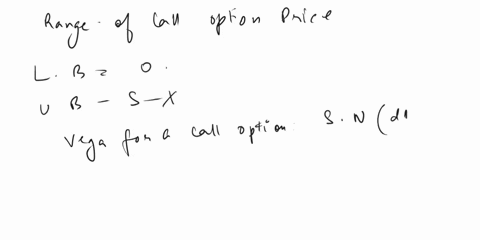 Range of Call option Price
L. B = 0.
U B - S-X
Vega for a call option: S. N (d1